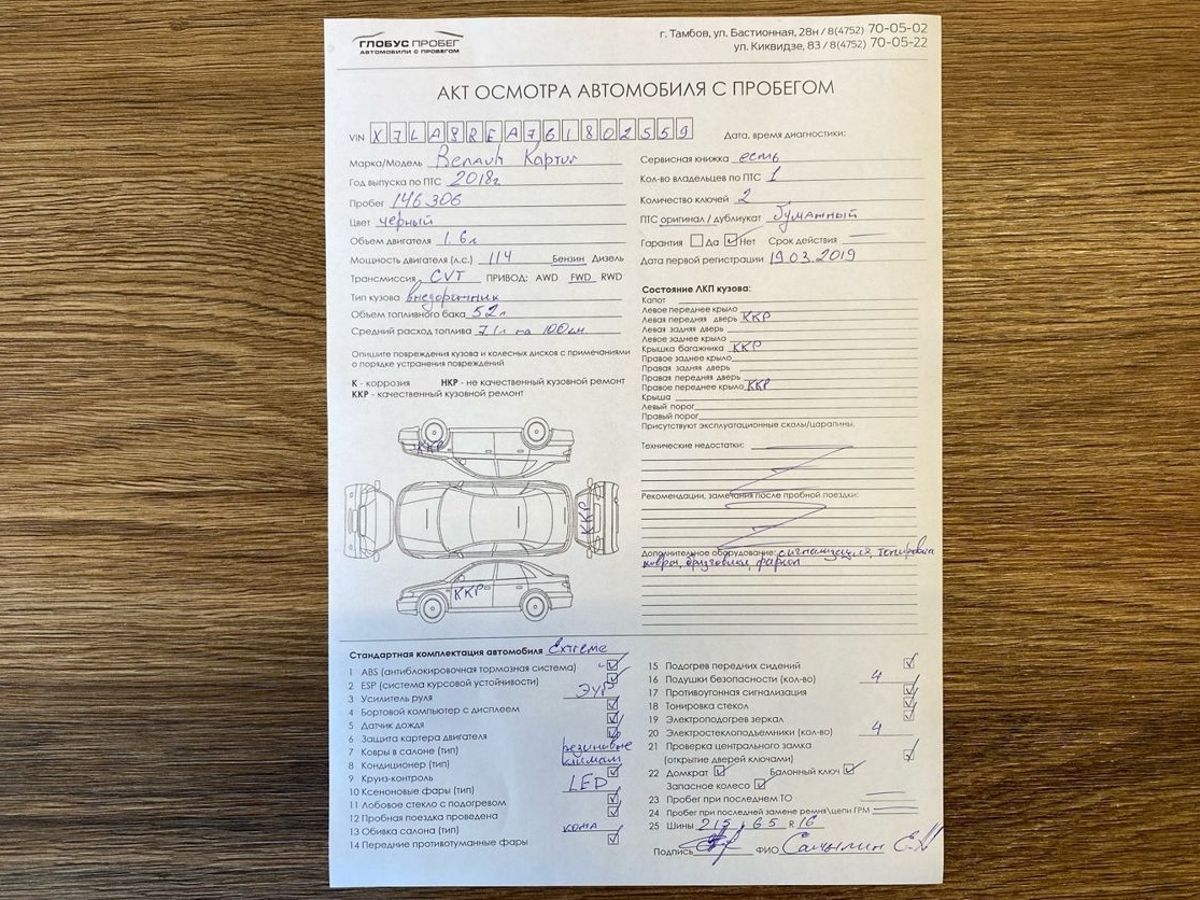 ГЛОБУС ПРОБЕГ
АВТОМОБИЛИ С ПРОБЕГОМ
г. Тамбов, ул. Бастионная, 28н / 8(4752) 70-05-02
ул. Киквидзе, 83 / 8(4752) 70-05-22
АКТ ОСМОТРА АВТОМОБИЛЯ С ПРОБЕГОМ
VIN X7LA8REA761802559
Дата, время диагностики:
Марка/Модель Renault Каптюр
Год выпуска по ПТС 2018г
Пробег 146 306
Цвет черный
Объем двигателя 1.6л
Мощность двигателя (л.с.) 114 Бензин Дизель
Трансмиссия CVT ПРИВОД: AWD FWD RWD
Тип кузова внедорожник
Объем топливного бака 52л
Средний расход топлива 7.1л на 100км
Опишите повреждения кузова и колесных дисков с примечаниями
о порядке устранения повреждений
К - коррозия НКР - не качественный кузовной ремонт
ККР - качественный кузовной ремонт
ККР
ККР
ККР
Сервисная книжка есть
Кол-во владельцев по ПТС 1
Количество ключей 2
ПТС оригинал / дубликат бумажный
Гарантия Да Нет Срок действия
Дата первой регистрации 19.03.2019
Состояние ЛКП кузова:
Капот
Левое переднее крыло
Левая передняя дверь ККР
Левая задняя дверь
Левое заднее крыло
Крышка багажника ККР
Правое заднее крыло
Правая задняя дверь
Правая передняя дверь
Правое переднее крыло ККР
Крыша
Левый порог
Правый порог
Присутствуют эксплуатационные сколы/царапины.
Технические недостатки:
Рекомендации, замечания после пробной поездки:
Дополнительное оборудование: сигнализация, тонировка
ковры, брызговики, фаркоп
Стандартная комплектация автомобиля Extreme
1 ABS (антиблокировочная тормозная система)
2 ESP (система курсовой устойчивости)
3 Усилитель руля ЭУР
4 Бортовой компьютер с дисплеем
5 Датчик дождя
6 Защита картера двигателя
7 Ковры в салоне (тип) резиновые
8 Кондиционер (тип) климат
9 Круиз-контроль
10 Ксеноновые фары (тип) LED
11 Лобовое стекло с подогревом
12 Пробная поездка проведена
13 Обивка салона (тип) кожа
14 Передние противотуманные фары
15 Подогрев передних сидений
16 Подушки безопасности (кол-во) 4
17 Противоугонная сигнализация
18 Тонировка стекол
19 Электроподогрев зеркал
20 Электростеклоподъемники (кол-во) 4
21 Проверка центрального замка
(открытие дверей ключами)
22 Домкрат Балонный ключ
Запасное колесо
23 Пробег при последнем ТО
24 Пробег при последней замене ремня\цепи ГРМ
25 Шины 215 / 65 R 16
Подпись ФИО